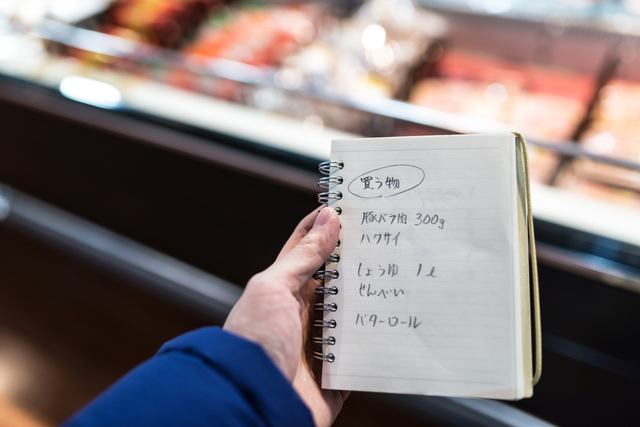 買う物
豚バラ肉 300g
ハクサイ
しょうゆ 1ℓ
せんべい
バターロール